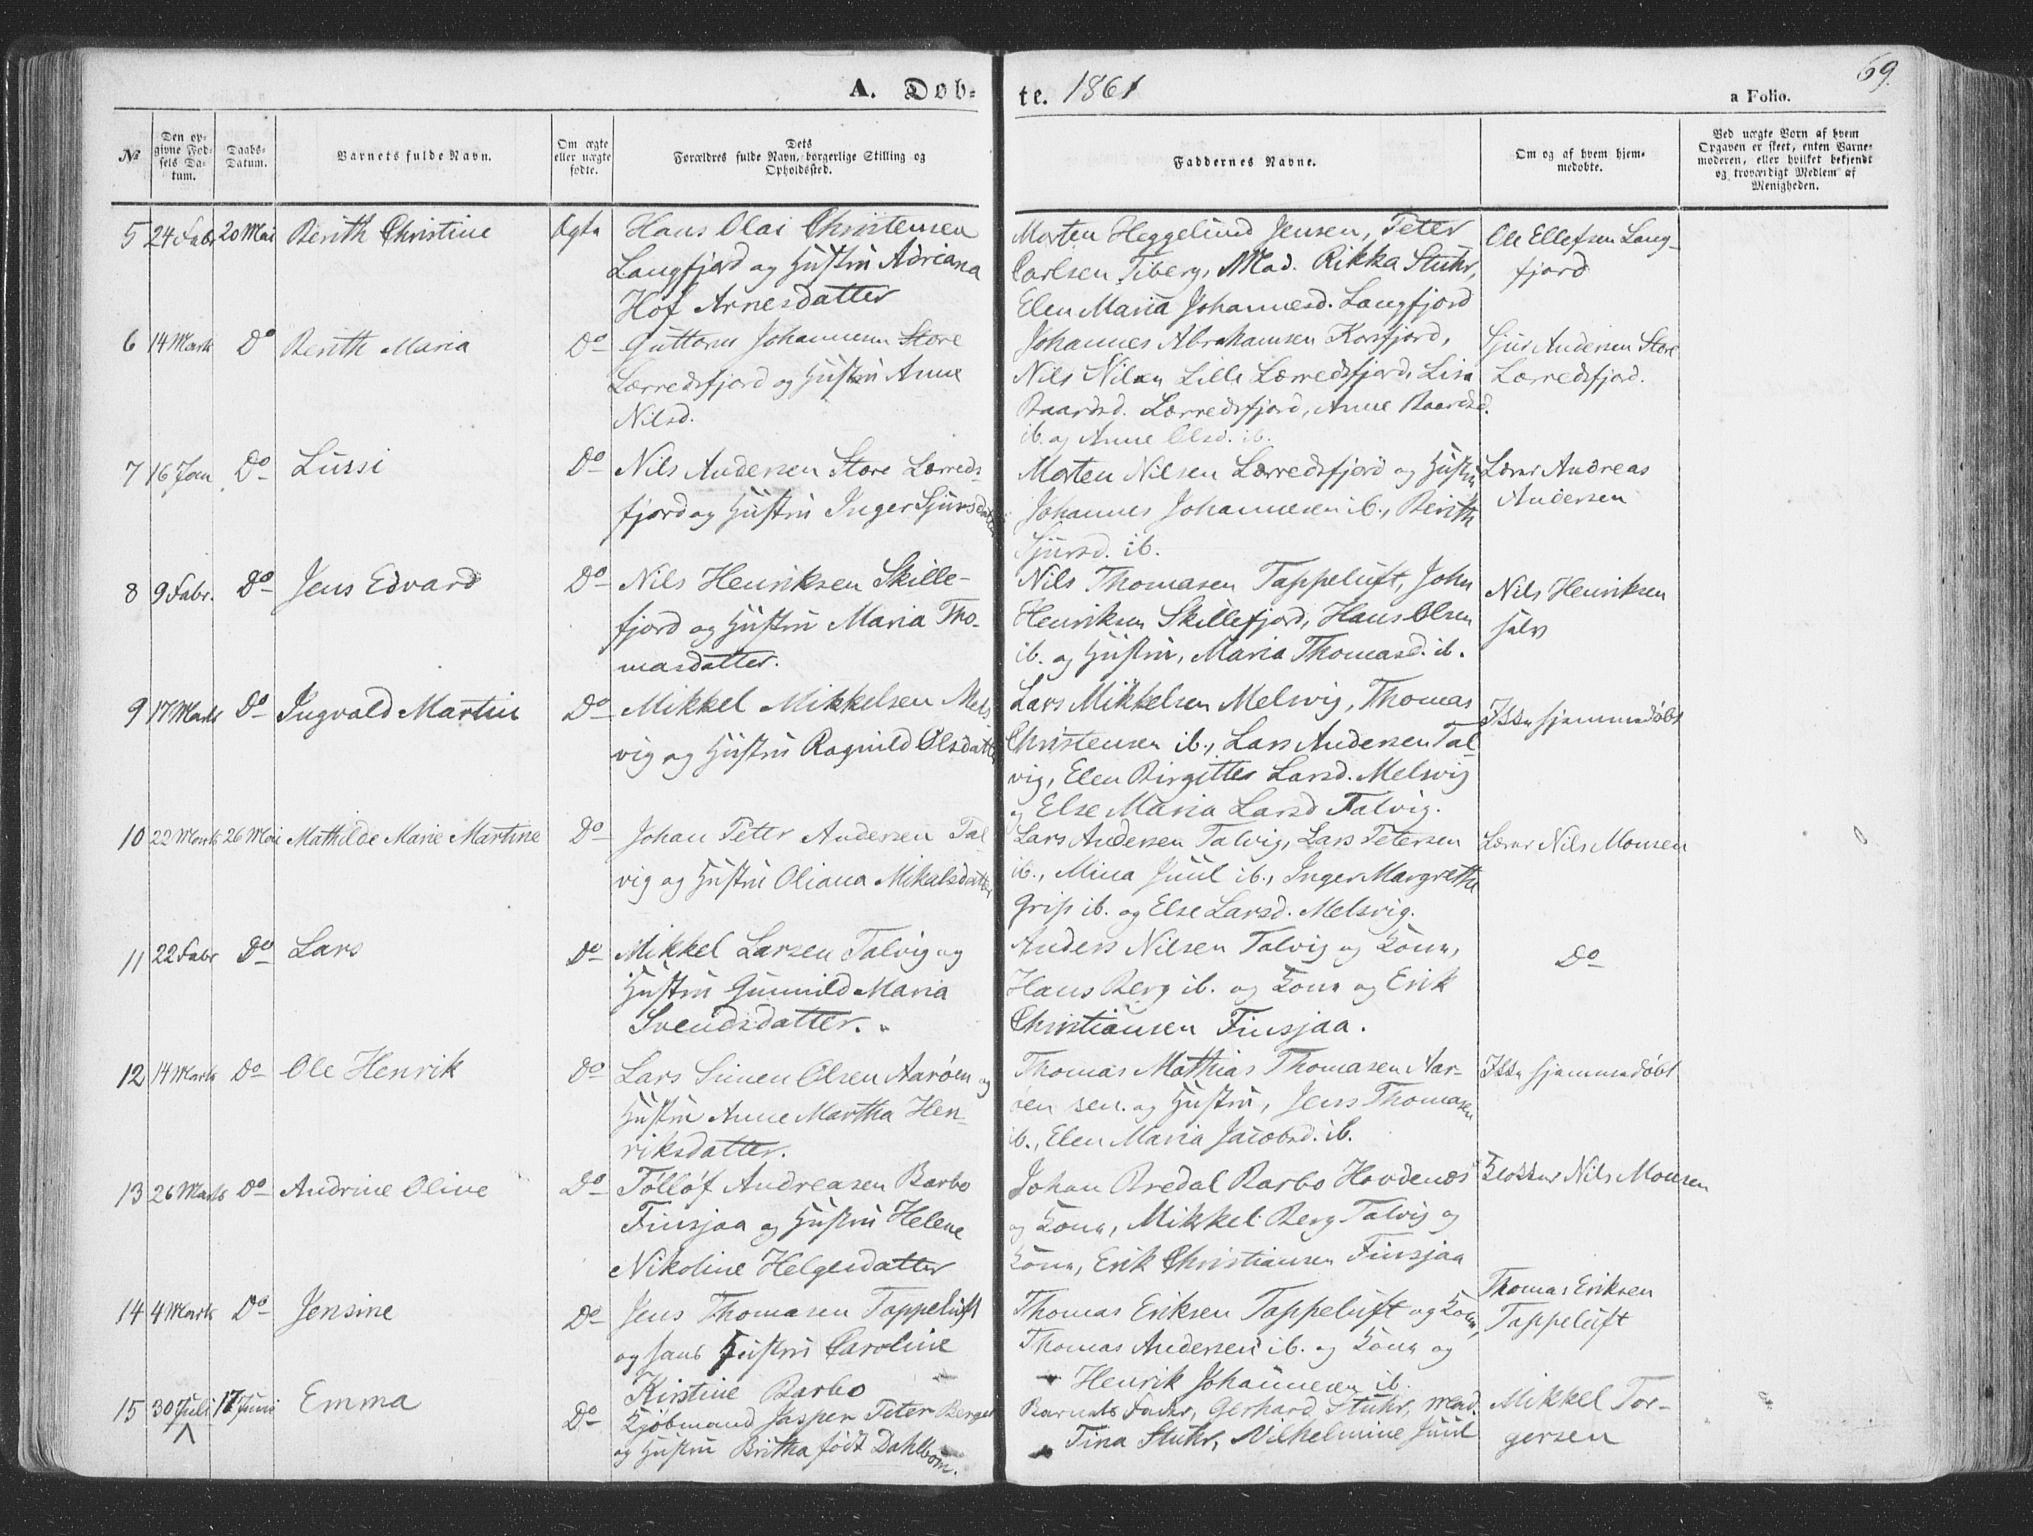 A. Døb-
te. 1861
69.
a Folio.
№
Den op-
givne Fød-
sels Da-
tum.
Daabs-
Datum.
Barnets fulde Navn.
Om ægte
eller uægte
fødte.
Dets
Forældres fulde Navn, borgerlige Stilling og
Opholdssted.
Faddernes Navne.
Om og af hvem hjem-
medøbte.
Ved uægte Børn af hvem
Opgaven er skeet, enten Barne-
moderen, eller hvilket bekjendt
og troværdigt Medlem af
Menigheden.
5 24 Febr 20 Mai Berith Christine Ægte
Hans Olai Christensen
Langfjord og Hustru Adriana
Hof Arnesdatter
Morten Heggelund Jensen, Peter
Carlsen Tiberg, Mad. Rikka Stuhr,
Elen Maria Johannesd. Langfjord
Ole Ellefsen Lang-
fjord
6 14 Marts Do Berith Maria Do
Guttorm Johannesen Store
Lærredsfjord og Hustru Anne
Nilsd.
Johannes Abrahamsen Korsfjord,
Nils Nilsen Lille Lærredsfjord, Lisa
Baardsd. Lærredsfjord, Anne Baardsd.
ib. og Anne Olsd. ib.
Sjur Andersen Store
Lærredsfjord.
7 16 Jan Do Lussi Do
Nils Andersen Store Lærreds-
fjord og Hustru Inger Sjursdatter
Morten Nilsen Lærredsfjord og Hustru
Johannes Johannesen ib., Berith
Sjursd. ib.
Lærer Andreas
Andersen
8 9 Febr. Do Jens Edvard Do
Nils Henriksen Skille-
fjord og Hustru Maria Tho-
masdatter.
Nils Thomasen Tappeluft, John
Henriksen Skillefjord, Hans Olsen
ib. og Hustru, Maria Thomasd. ib.
Nils Henriksen
selv
9 17 Marts Do Ingvald Martin Do
Mikkel Mikkelsen Mels
vig og Hustru Ragnild Olsdatter
Lars Mikkelsen Melsvig, Thomas
Christensen ib., Lars Andersen Tal-
vig, Elen Birgitte Larsd. Melsvig
og Else Maria Larsd Talvig.
Ikke hjemmedøbt
10 22 Marts 26 Mai Mathilde Marie Martine Do
Johan Peter Andersen Tal
vig og Hustru Oliana Mikalsdatter
Lars Andersen Talvig, Lars Petersen
ib., Mina Juul ib., Inger Margrethe
Grip ib. og Else Larsd. Melsvig.
Lærer Nils Monsen
11 22 Febr Do Lars Do
Mikkel Larsen Talvig og
Hustru Gunnild Maria
Svendsdatter.
Anders Nilsen Talvig og Kone,
Hans Berg ib. og Kone og Erik
Christiansen Finsjaa.
Do
12 14 Marts Do Ole Henrik Do
Lars Simen Olsen Aarøen og
Hustru Anne Martha Hen-
riksdatter.
Thomas Mathias Thomasen Aar-
øen sen. og Hustru, Jens Thomasen
ib., Elen Maria Jacobsd. ib.
Ikke hjemmedøbt
13 26 Marts Do Andrine Oline Do
Tollof Andreasen Barbo
Finsjaa og Hustru Helene
Nikoline Helgesdatter
Johan Bredal Barbo Hovdenæs
og Kone, Mikkel Berg Talvig og
Kone, Erik Christiansen Finsjaa
Klokker Nils Monsen
14 4 Marts Do Jensine Do
Jens Thomasen Tappeluft
og hans Hustru Caroline
Kirstine Barbo
Thomas Eriksen Tappeluft og Kone,
Thomas Andersen ib. og Kone og
Henrik Johannesen ib.
Thomas Eriksen
Tappeluft
15 30 Juli 17 Juni Emma Do
Kjøbmand Jasper Peter Berger
og Hustru Britha født Dahlbom.
Barnets Fader, Gerhard Stuhr, Mad.
Tina Stuhr, Vilhelmine Juul
Mikkel Tor-
gersen